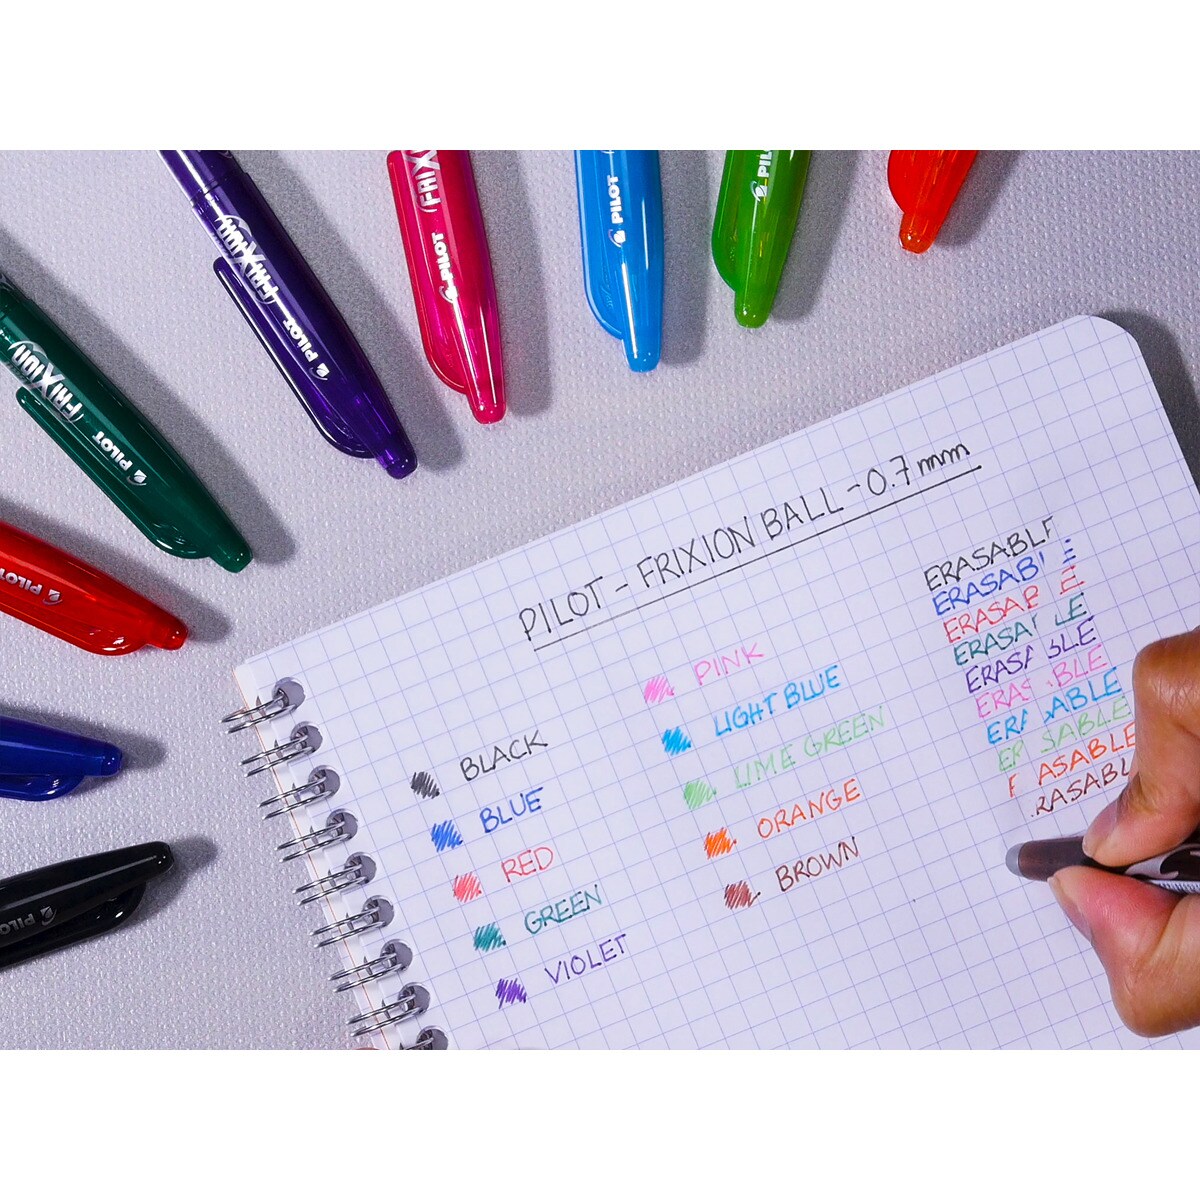 FRIXION
PILOT
FRIXION
PILOT
FRIX
PILOT
PILOT
PIL
PILOT
PILO
PILOT - FRIXION BALL - 0.7 mm
BLACK
BLUE
RED
GREEN
VIOLET
PINK
LIGHT BLUE
LIME GREEN
ORANGE
BROWN
ERASABLE
ERASAB E
ERASAB E
ERASA LE
ERASA BLE
ERAS BLE
ERA ABLE
ER SABLE
E ASABLE
RASABL